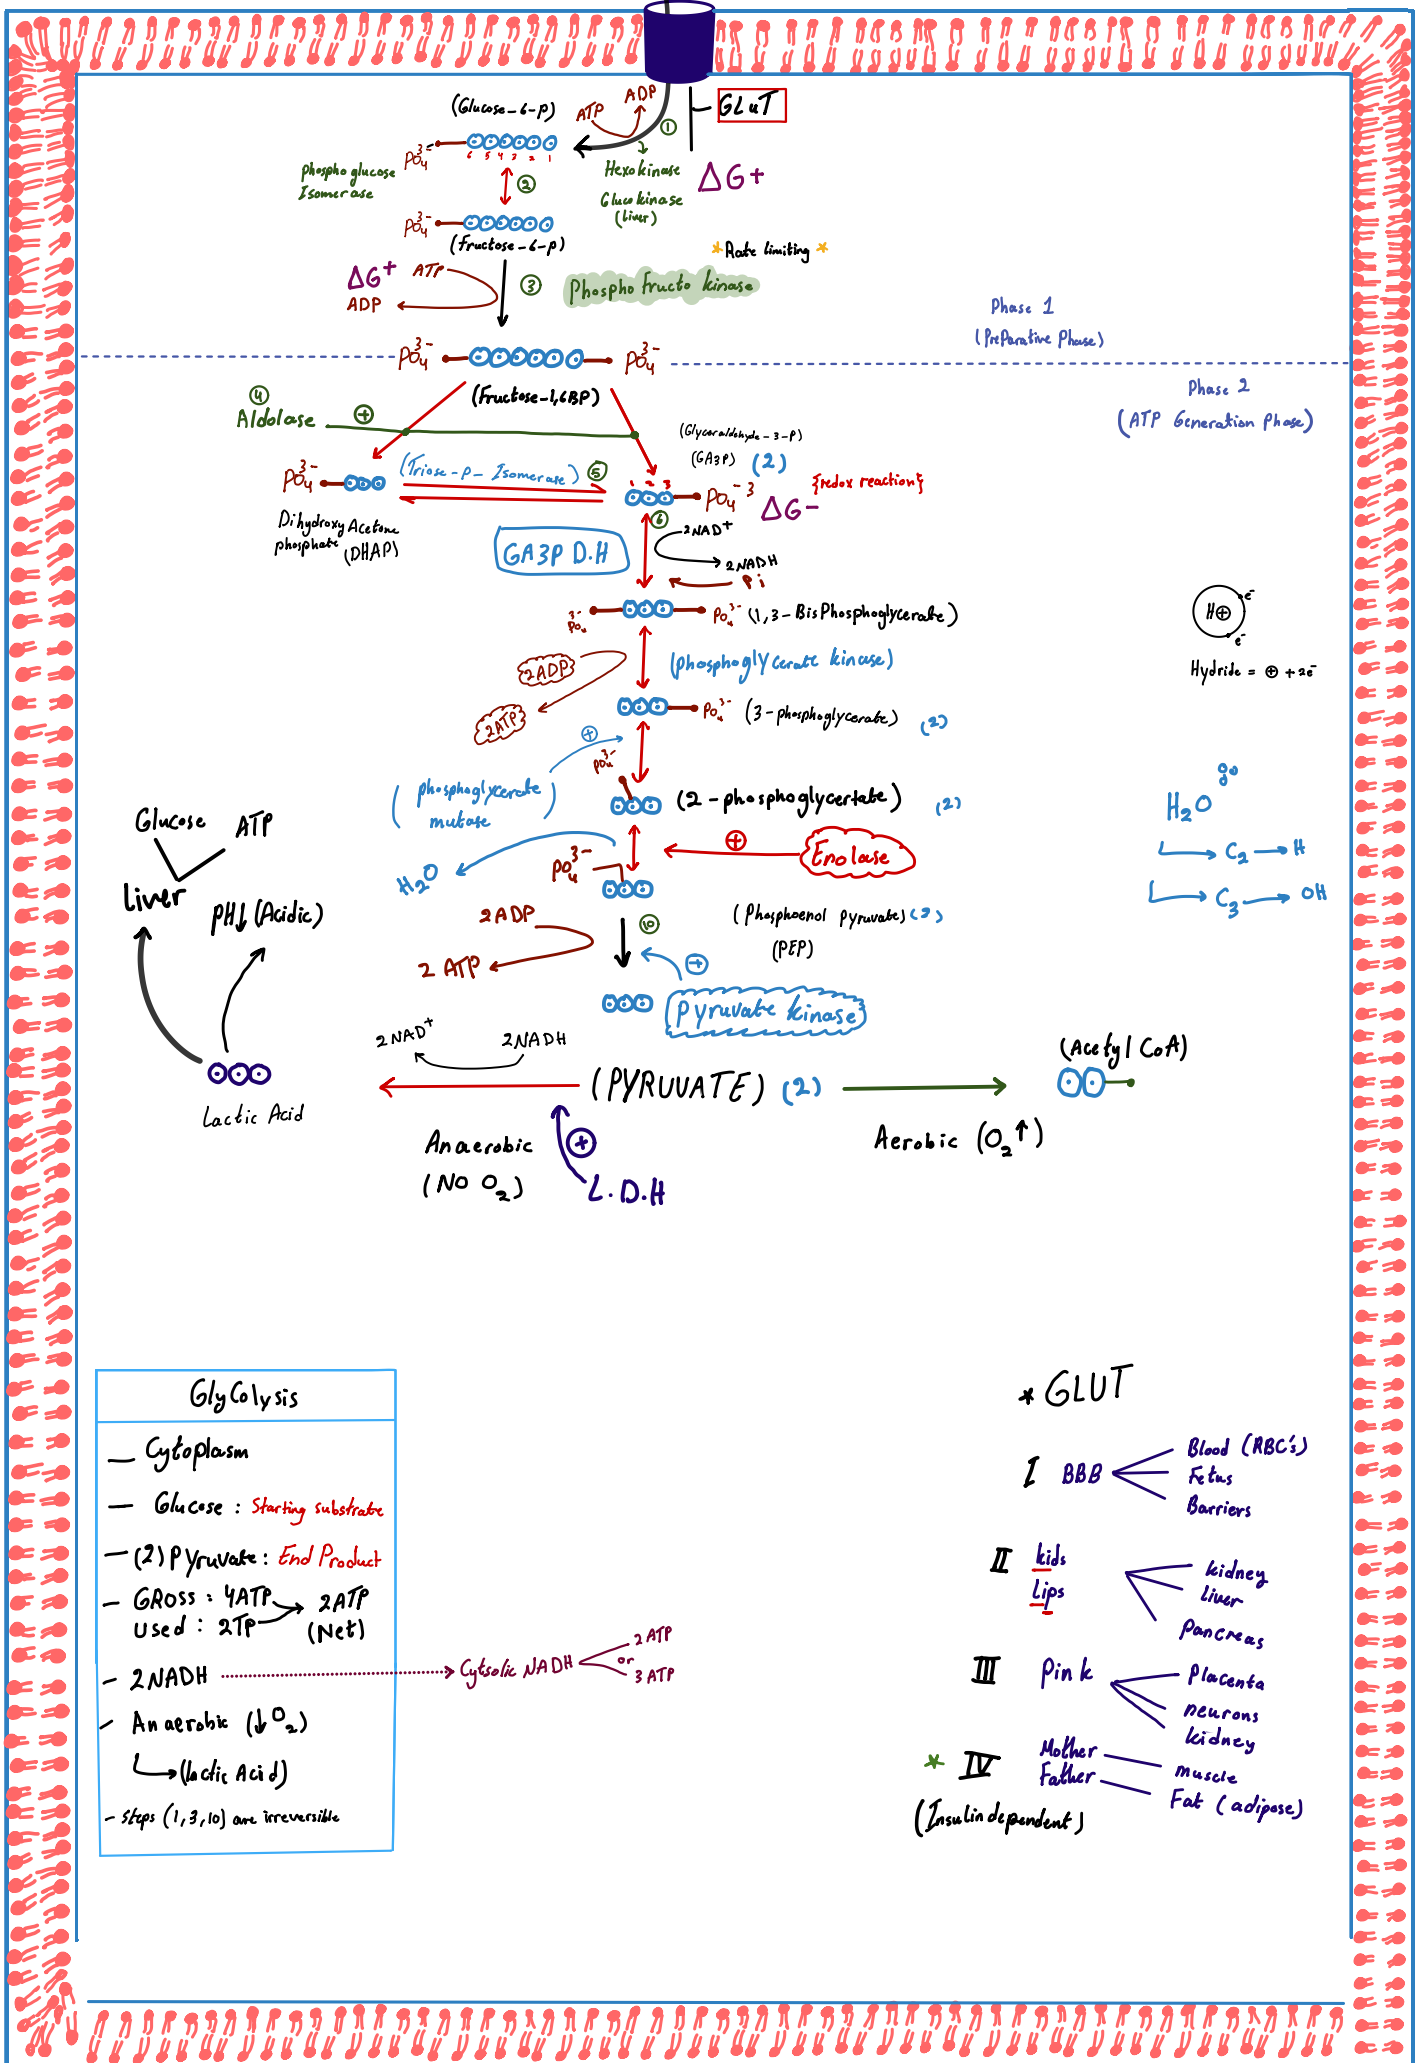 GLUT
(Glucose-6-P)
ATP
ADP
1
PO4 3-
6 5 4 3 2 1
Hexokinase
Glucokinase
(liver)
ΔG+
phosphoglucose
Isomerase
2
PO4 3-
(Fructose-6-P)
*Rate limiting*
ΔG+
ATP
ADP
3
Phospho fructo kinase
Phase 1
(Preparative Phase)
PO4 3-
PO4 3-
(Fructose-1,6BP)
Phase 2
(ATP Generation Phase)
4
Aldolase
+
(Glyceraldehyde-3-P)
(GA3P) (2)
PO4 3-
(Triose-P-Isomerase) 5
1 2 3
PO4 -3
ΔG-
{redox reaction}
Dihydroxy Acetone
phosphate (DHAP)
GA3P D.H
6
2NAD+
2NADH
Pi
3-
PO4
PO4 3-
(1,3-BisPhosphoglycerate)
H+
e-
e-
Hydride = + +2e-
2ADP
2ATP
(phosphoglycerate kinase)
PO4 3-
(3-phosphoglycerate) (2)
+
PO4 3-
(phosphoglycerate
mutase)
(2-phosphoglycertate) (2)
H2O
C2 → H
C3 → OH
Glucose
ATP
liver
pH↓ (Acidic)
H2O
PO4 3-
+
Enolase
2ADP
2 ATP
10
(Phosphoenol pyruvate) (2)
(PEP)
+
Pyruvate kinase
2NAD+
2NADH
(PYRUVATE) (2)
Lactic Acid
Anaerobic
(NO O2)
+
L.D.H
(Acetyl CoA)
Aerobic (O2↑)
Glycolysis
- Cytoplasm
- Glucose : Starting substrate
- (2) Pyruvate : End Product
- GROSS : 4ATP → 2ATP
used : 2TP (Net)
- 2NADH → Cytsolic NADH
2 ATP
or
3 ATP
- Anaerobic (↓O2)
→ (lactic Acid)
- steps (1,3,10) are irreversible
* GLUT
I BBB
Blood (RBC's)
Fetus
Barriers
II kids
Lips
kidney
liver
pancreas
III Pink
Placenta
neurons
kidney
* IV Mother
Father
muscle
Fat (adipose)
(Insulin dependent)